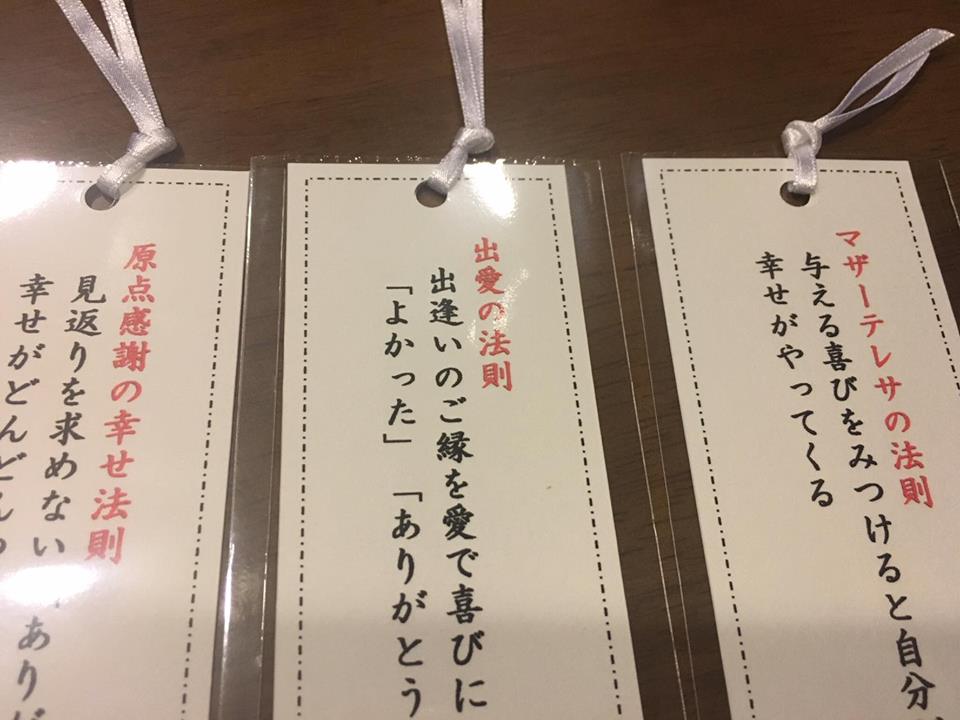 マザーテレサの法則
与える喜びをみつけると自分
幸せがやってくる
出愛の法則
出逢いのご縁を愛で喜びに
「よかった」「ありがとう
原点感謝の幸せ法則
見返りを求めない「あり
幸せがどんどん